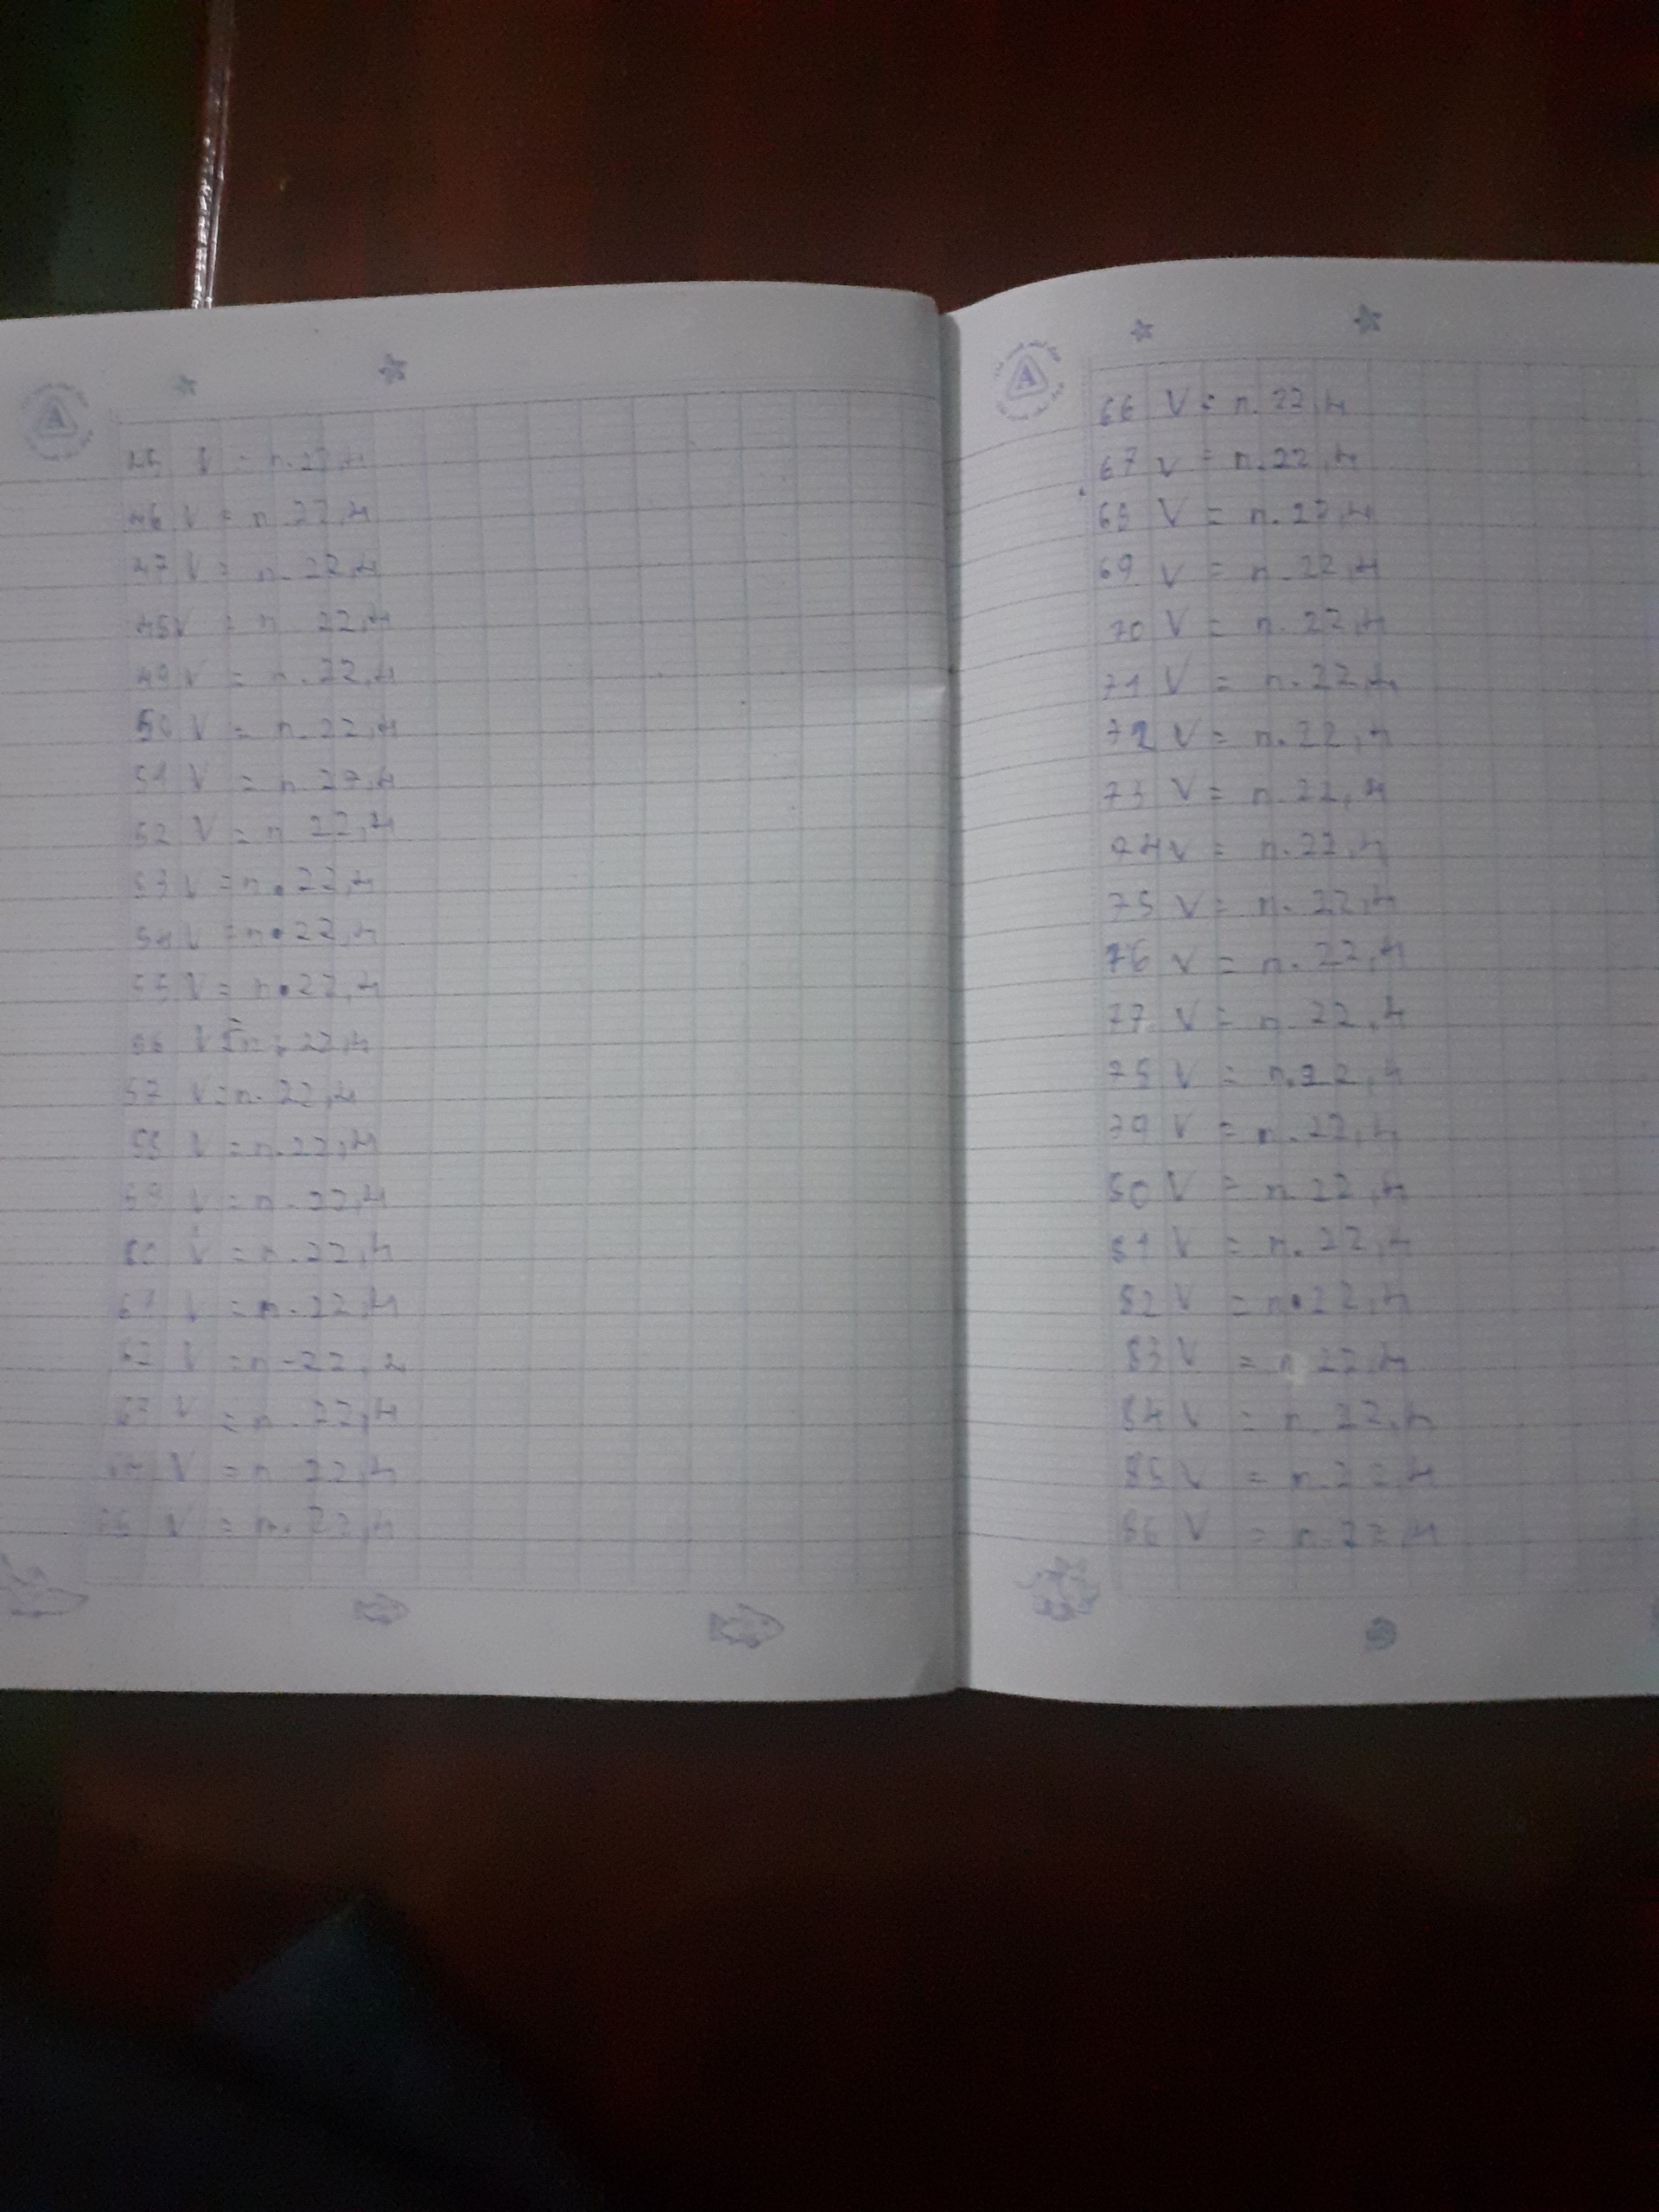 45 V = n. 22,4
46 V = n. 22,4
47 V = n. 22,4
48 V = n 22,4
49 V = n. 22,4
50 V = n. 22,4
51 V = n. 22,4
52 V = n 22,4
53 V = n. 22,4
54 V = n. 22,4
55 V = n. 22,4
56 V = n. 22,4
57 V = n. 22,4
58 V = n. 22,4
59 V = n. 22,4
60 V = n. 22,4
61 V = n. 22,4
62 V = n. 22,4
63 V = n. 22,4
64 V = n 22,4
65 V = n. 22,4
A
66 V = n. 22,4
67 V = n. 22,4
68 V = n. 22,4
69 V = n. 22,4
70 V = n. 22,4
71 V = n. 22,4
72 V = n. 22,4
73 V = n. 22,4
74 V = n. 22,4
75 V = n. 22,4
76 V = n. 22,4
77 V = n 22,4
78 V = n. 22,4
79 V = n. 22,4
80 V = n 22,4
81 V = n. 22,4
82 V = n. 22,4
83 V = n 22,4
84 V = n. 22,4
85 V = n. 22,4
86 V = n. 22,4